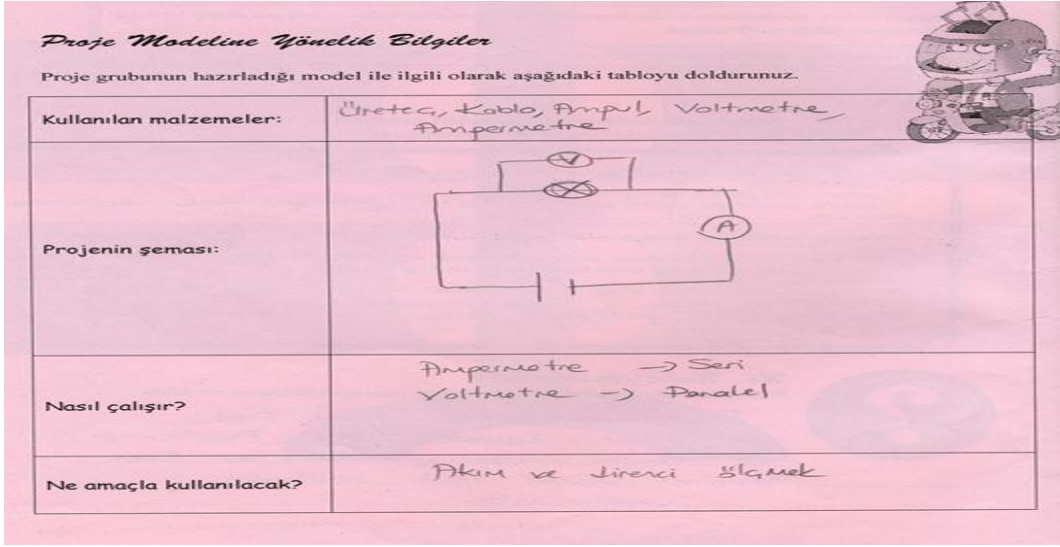 Proje Modeline Yönelik Bilgiler
Proje grubunun hazırladığı model ile ilgili olarak aşağıdaki tabloyu doldurunuz.
Kullanılan malzemeler:
Üreteç, Kablo, Ampul, Voltmetre,
Ampermetre
Projenin şeması:
V
A
Nasıl çalışır?
Ampermetre -> Seri
Voltmetre -> Paralel
Ne amaçla kullanılacak?
Akım ve direnci ölçmek